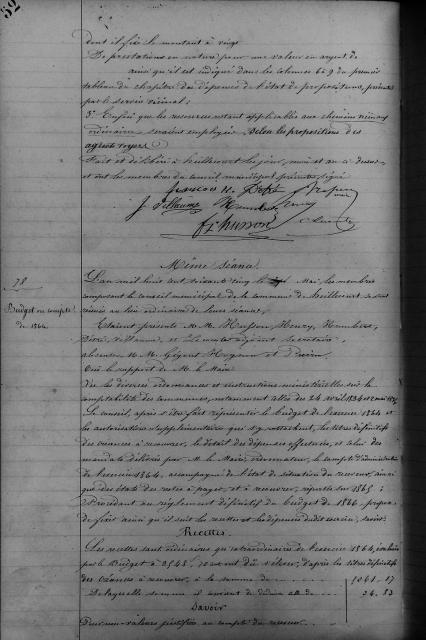 52
dont il fixe le montant à vingt
De prestations en nature pour une valeur en argent de
ainsi qu'il est indiqué dans les colonnes 6 à 9 du premier
tableau du chapitre des dépenses de l'état de propositions, présenté
par le service vicinal;
3° Enfin que les ressources restant applicables aux chemins vicinaux
ordinaires seraient employées selon les propositions des
agents voyers
Fait et délibéré à heillecourt les jour, mois et an ci dessus
et ont les membres du conseil municipal présents signé
J Villaume
F. husson
Même séance
78
Budget ou compte
de 1864.
L'an mil huit cent soixante cinq le Mai, les membres
composant le conseil municipal de la commune de heillecourt se sont
réunis au lieu ordinaire de leurs séances,
Etaient présents M.M. Husson, Henry, Humbert,
Villaume, et adjoint secrétaire,
absents M.M. Gégout et
Ouï le rapport de M. le Maire
Vu les diverses ordonnances et instructions ministérielles sur la
comptabilité des communes, notamment celles des 24 avril 1834
Le conseil, après s'être fait représenter le budget de l'exercice 1864 et
les autorisations supplémentaires qui s'y rattachent, les titres définitifs
des créances à recouvrer, le détail des dépenses effectuées, et celui des
mandats délivrés par M. le Maire, le compte d'administration
de l'exercice 1864, accompagné de l'état de situation du receveur, ainsi
que des états des restes à payer, et à recouvrer, reportés sur 1865;
Procédant au règlement définitif du budget de 1864, propose
de fixer ainsi qu'il suit les recettes et les dépenses dudit exercice, savoir:
Recettes.
Les recettes tant ordinaires qu'extraordinaires de l'exercice 1864, évaluées
par le Budget à ont dû s'élever, d'après les titres définitifs
des créances à recouvrer, à la somme de
De laquelle somme il convient de déduire celle de 34. 83
Savoir
Pour non-valeurs justifiées au compte du receveur